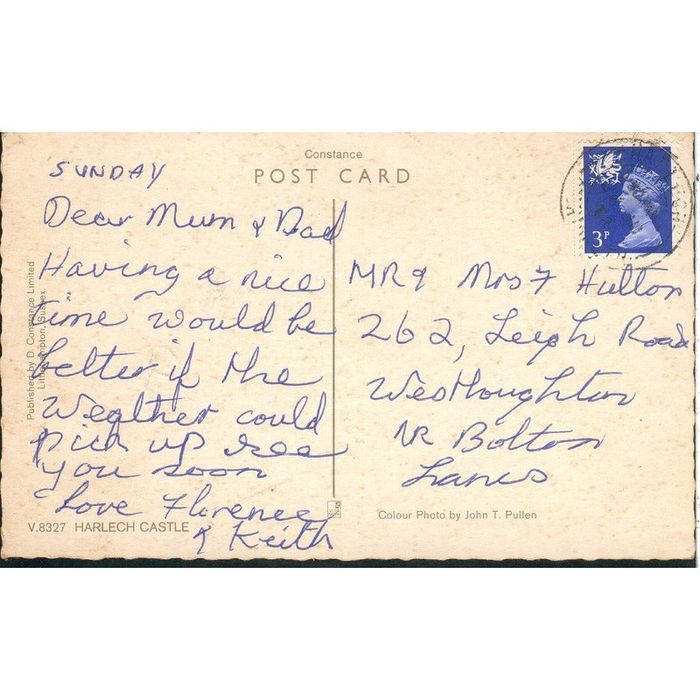 Constance
POST CARD
SUNDAY
Dear Mum & Dad
Having a nice
time would be
better if the
Weather could
pick up see
you soon
Love Florence
& Keith
MR & Mrs F Hulton
262, Leigh Road
Westhoughton
NR Bolton
Lancs
3P
Published by D. Constance Limited
Littlehampton, Sussex.
V.8327 HARLECH CASTLE
Colour Photo by John T. Pullen